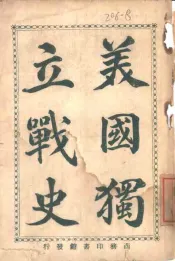 美國獨
立戰史
商務印書館發行
206-8